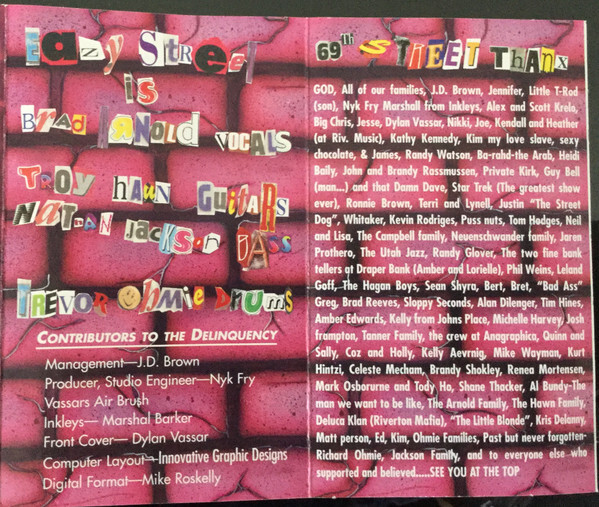 Eazy Street
is
Brad Arnold vocals
Troy Haun Guitars
Nathan Jackson Bass
Trevor Ohmie Drums
Contributors to the Delinquency
Management—J.D. Brown
Producer, Studio Engineer—Nyk Fry
Vassars Air Brush
Inkleys— Marshal Barker
Front Cover— Dylan Vassar
Computer Layout—Innovative Graphic Designs
Digital Format—Mike Roskelly
69th STREET Thanx
GOD, All of our families, J.D. Brown, Jennifer, Little T-Rod
(son), Nyk Fry Marshall from Inkleys, Alex and Scott Krela,
Big Chris, Jesse, Dylan Vassar, Nikki, Joe, Kendall and Heather
(at Riv. Music), Kathy Kennedy, Kim my love slave, sexy
chocolate, & James, Randy Watson, Ba-rahd-the Arab, Heidi
Baily, John and Brandy Rassmussen, Private Kirk, Guy Bell
(man...) and that Damn Dave, Star Trek (The greatest show
ever), Ronnie Brown, Terri and Lynell, Justin "The Street
Dog", Whitaker, Kevin Rodriges, Puss nuts, Tom Hedges, Neil
and Lisa, The Campbell family, Neuenschwander family, Jaren
Prothero, The Utah Jazz, Randy Glover, The two fine bank
tellers at Draper Bank (Amber and Lorielle), Phil Weins, Leland
Goff, The Hagan Boys, Sean Shyra, Bert, Bret, "Bad Ass"
Greg, Brad Reeves, Sloppy Seconds, Alan Dilenger, Tim Hines,
Amber Edwards, Kelly from Johns Place, Michelle Harvey, Josh
frampton, Tanner Family, the crew at Anagraphica, Quinn and
Sally, Caz and Holly, Kelly Aevrnig, Mike Wayman, Kurt
Hintzi, Celeste Mecham, Brandy Shokley, Renea Mortensen,
Mark Osborurne and Tody Ha, Shane Thacker, Al Bundy-The
man we want to be like, The Arnold Family, The Hawn Family,
Deluca Klan (Riverton Mafia), "The Little Blonde", Kris Delanny,
Matt person, Ed, Kim, Ohmie Families, Past but never forgotten-
Richard Ohmie, Jackson Family, and to everyone else who
supported and believed.....SEE YOU AT THE TOP